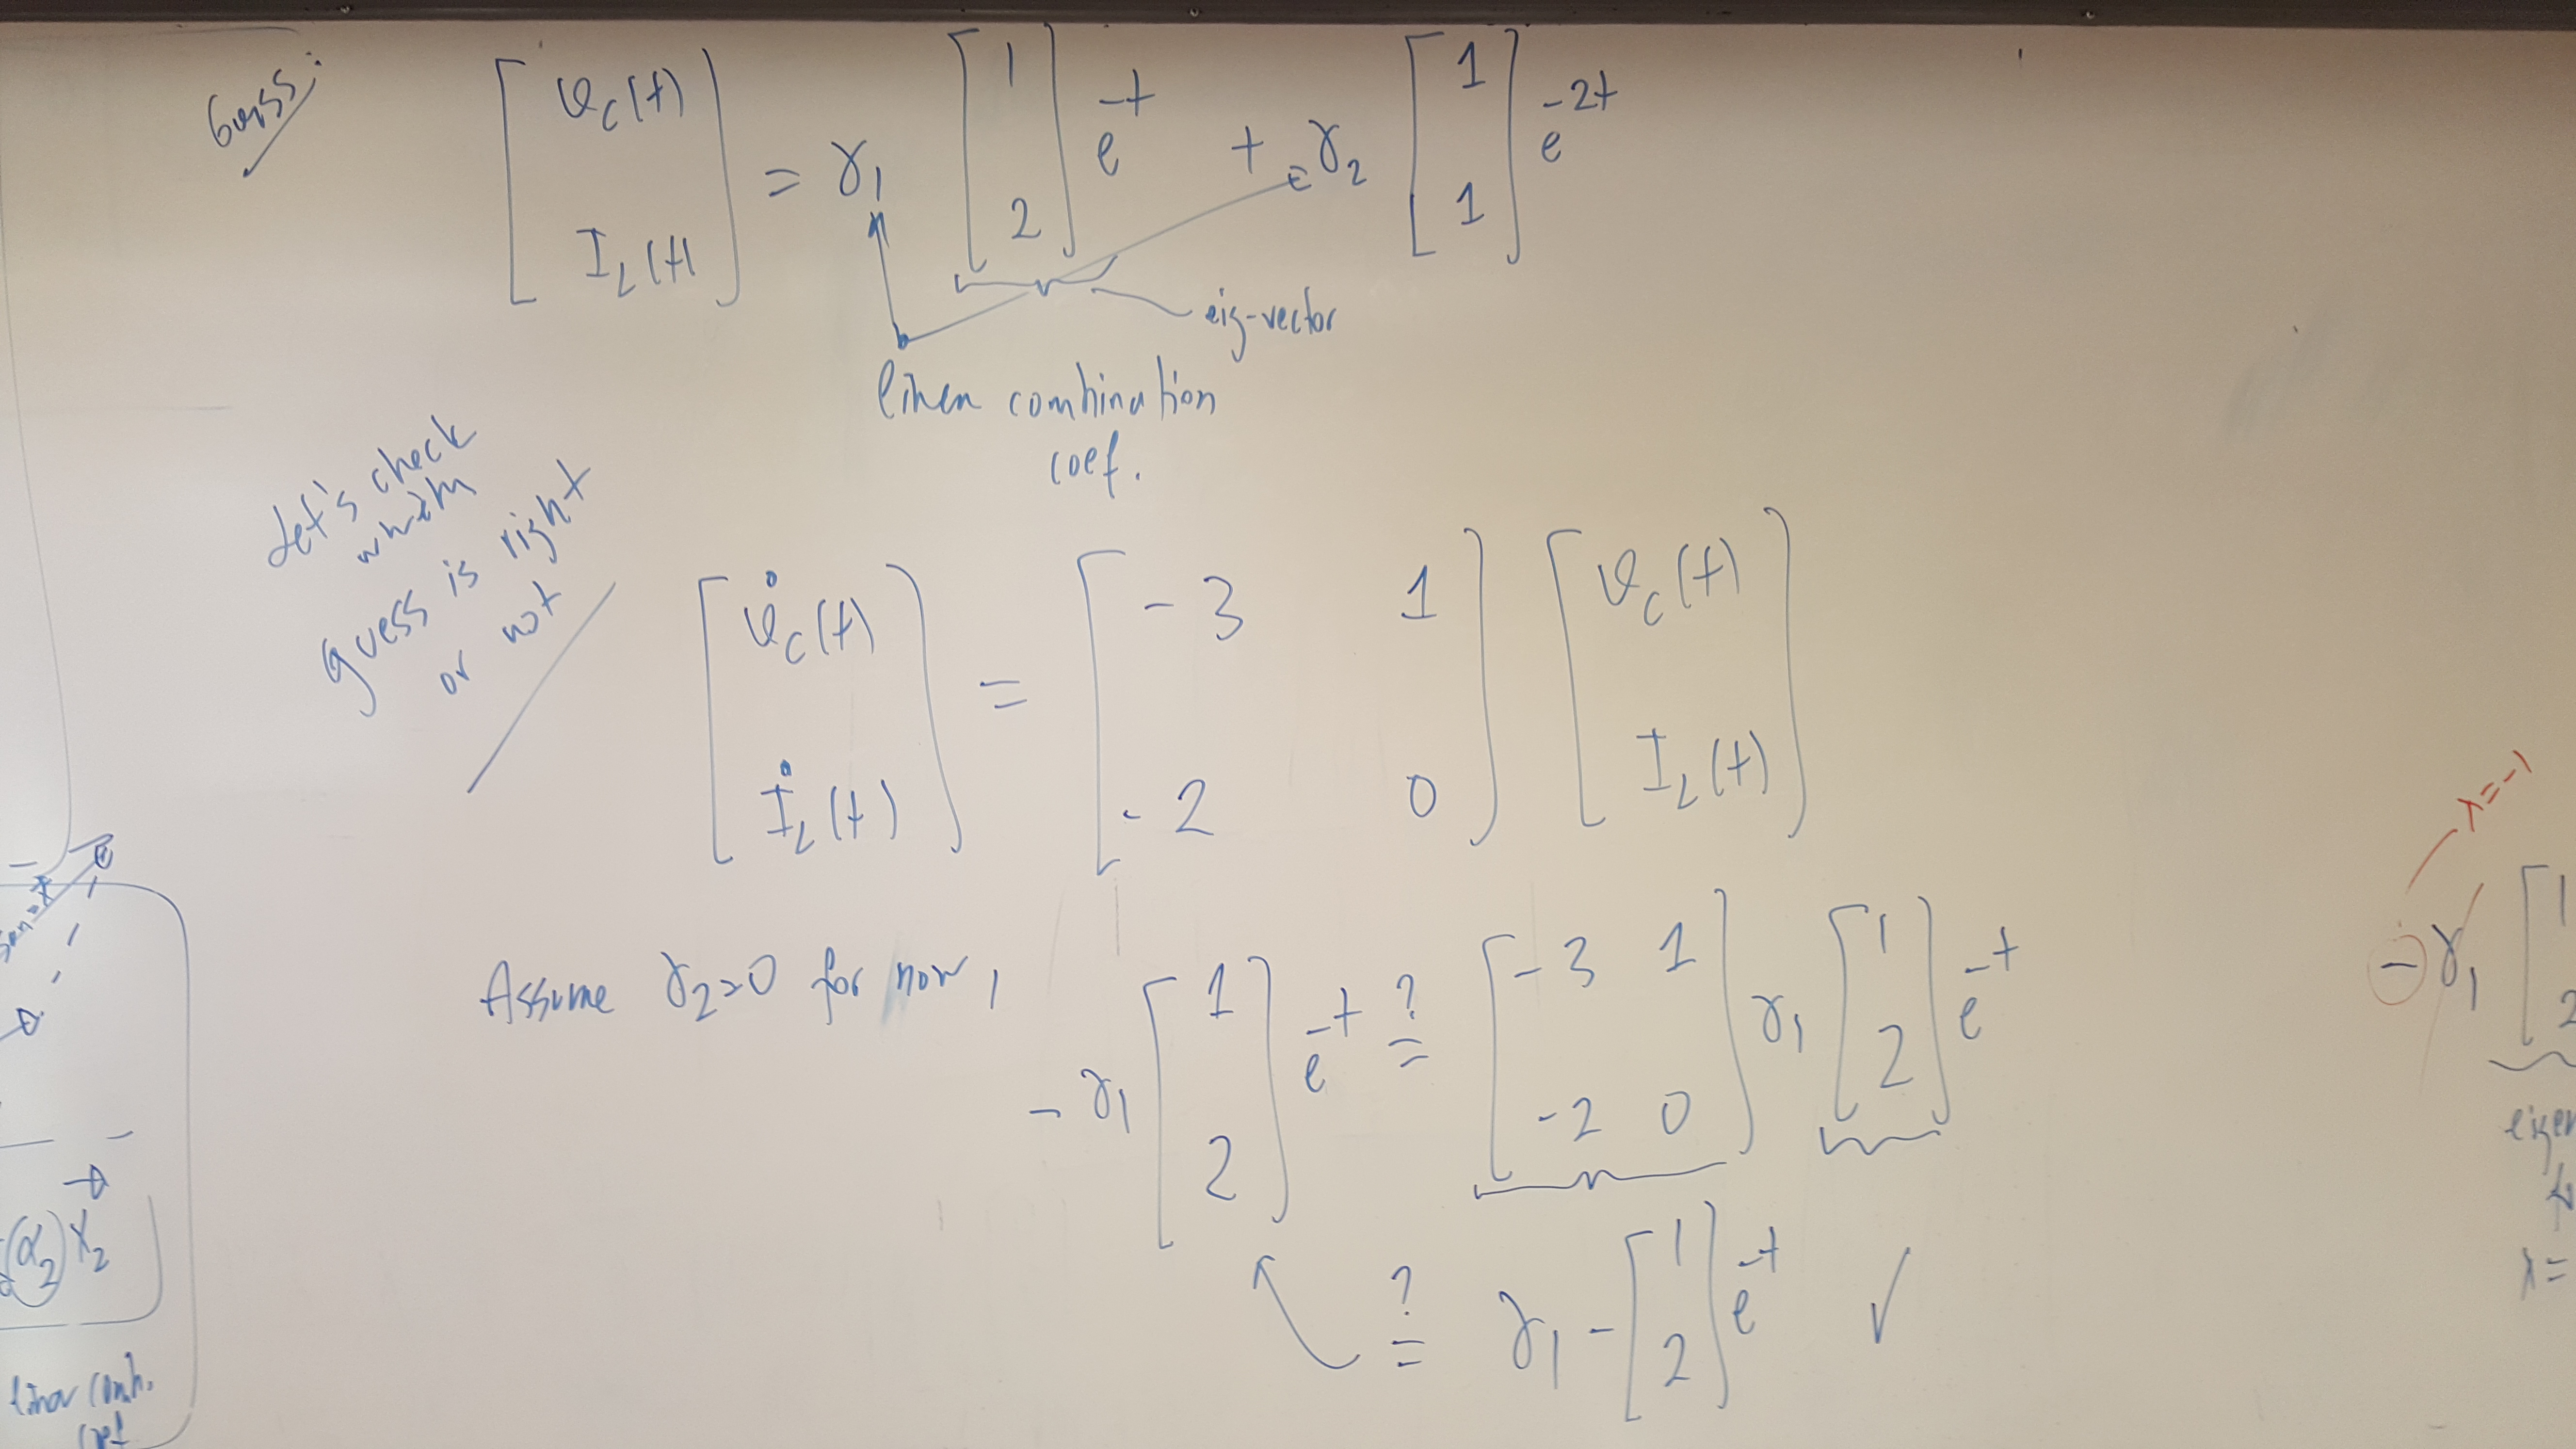 Guess:
[ϑc(t) I_L(t)] = γ1 [1 2] e^-t + γ2 [1 1] e^-2t
eig-vector
linen combination
coef.
Let's check
wheth
guess is right
or not
[ϑ̇c(t) İ_L(t)] = [-3 1 -2 0] [ϑc(t) I_L(t)]
λ=-1
Assume γ2=0 for now,
-γ1 [1 2] e^-t ?= [-3 1 -2 0] γ1 [1 2] e^-t
-γ1 [1 2
?= γ1 -[1 2] e^-t ✓
(α2) x2
linar comb.
coef
eigen
λ=